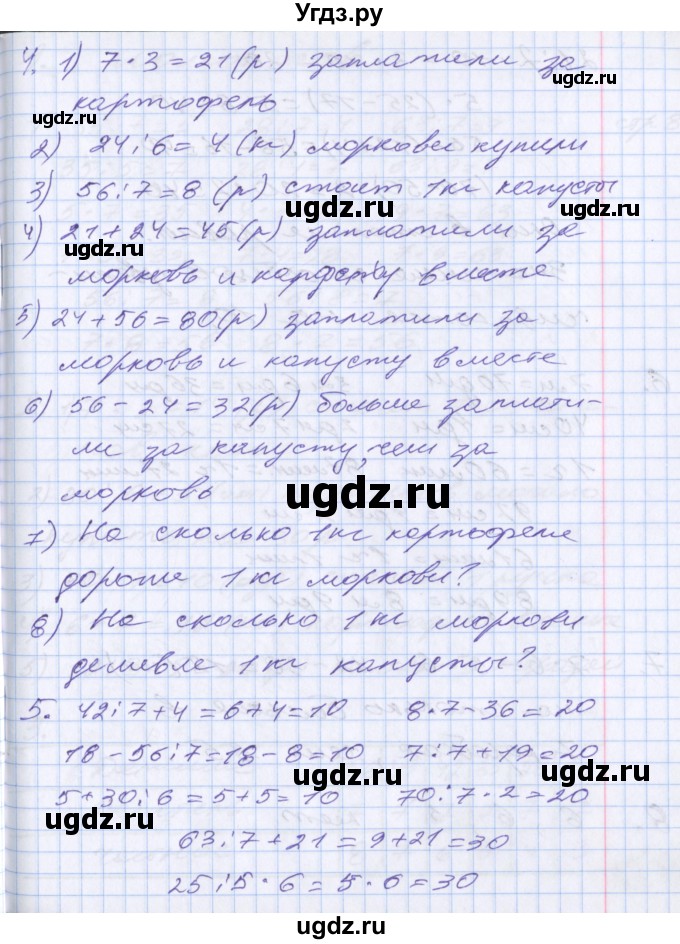 Угдз.ру
4. 1) 7·3=21(р) заплатили за
картофель
2) 24:6=4(кг) моркови купили
ugdz.ru ugdz.ru
3) 56:7=8 (р) стоит 1кг капусты
ugdz.ru
4) 21+24=45(р) заплатили за
ugdz.ru
морковь и вместе
ugdz.ru
5) 24+56=80(р) заплатили за
морковь и капусту вместе
6) 56-24=32(р) больше заплати-
ли за капусту, чем за
морковь
ugdz.ru
7) На сколько 1кг картофеля
дороже 1кг моркови?
8) На сколько 1кг моркови
дешевле 1кг капусты?
ugdz.ru
5. 42:7+4=6+4=10 8·7-36=20
18-56:7=18-8=10 7:7+19=20
ugdz.ru ugdz.ru
5+30:6=5+5=10 70:7·2=20
63:7+21=9+21=30
25:5·6=5·6=30
ugdz.ru